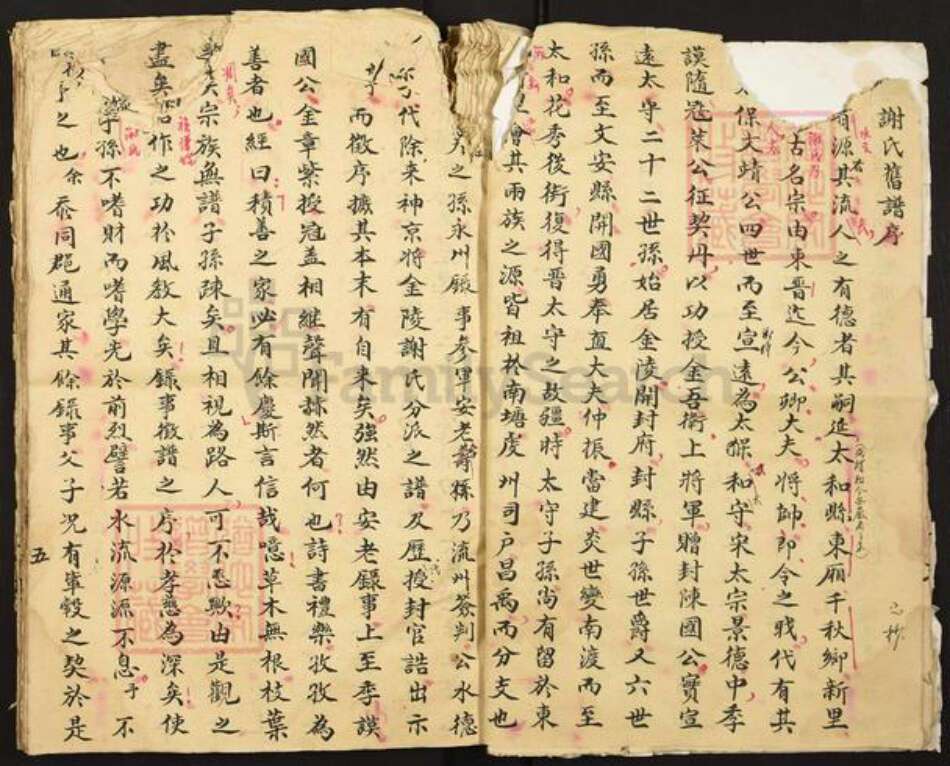 謝氏舊譜序
有源其流人之有德者其嗣延太和縣東廂千秋鄉新里
古名宗由東晉迄今公卿大夫將帥郎令之職代有其
保文靖公四世而至宣遠為太保和守宋太宗景德中季
謨隨寇萊公征契丹以功授金吾衛上將軍贈封陳國公實宣
遠太守二十二世孫始居金陵開封府封縣子孫世爵又六世
孫而至文安縣開國勇奉直大夫仲振當建炎世變南渡而至
太和花秀後街復得晉太守之故疆時太守子孫尚有留於東
會其兩族之源皆祖於南塘虔州司戶昌禹而分支也
之孫永州錄事參軍安老孫乃流州簽判公水德
代除來神京將金陵謝氏分派之譜及歷授封官誥出示
而徵序據其本末有自來矣強然由安老錄事上至季謨
國公金章紫授冠蓋相繼聲聞赫然者何也詩書禮樂孜孜為
善者也經曰積善之家必有餘慶斯言信哉噫草木無根枝葉
宗族無譜子孫疎矣且相視為路人可不悲歟由是觀之
盡矣作之功於風教大矣錄事徵譜之序於孝思為深矣使
學孫不嗜財而嗜學光於前烈譬若水流源源不息于不
之也余忝同郡通家其餘錄事父子况有軍轂之契於是
五
FamilySearch